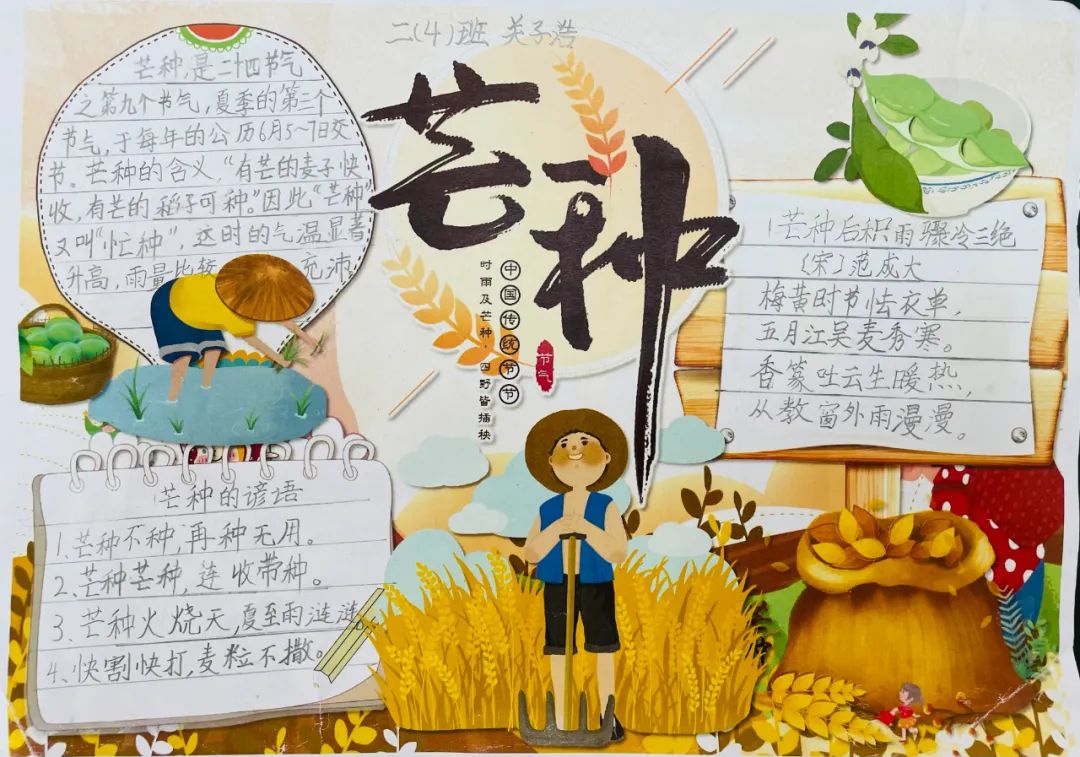 二(4)班 关子浩
芒种,是二十四节气
之第九个节气,夏季的第三个
节气,于每年的公历6月5~7日交
节。芒种的含义,“有芒的麦子快
收,有芒的稻子可种。”因此“芒种”
又叫“忙种”,这时的气温显著
升高,雨量比较 充沛
芒种
中国传统节节
时雨及芒种,四野皆插秧
节气
芒种后积雨骤冷三绝
(宋)范成大
梅黄时节怯衣单,
五月江吴麦秀寒。
香篆吐云生暖热,
从教窗外雨漫漫。
芒种的谚语
1、芒种不种,再种无用。
2、芒种芒种,连收带种。
3、芒种火烧天,夏至雨涟涟。
4、快割快打,麦粒不撒。